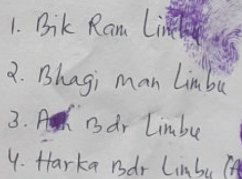 1. Bik Ram Limbu
2. Bhagi man Limbu
3. Bdr Limbu
4. Harka Bdr Limbu